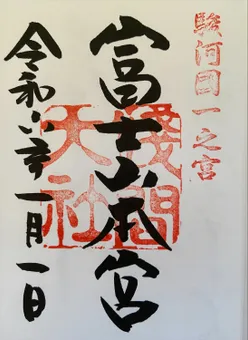 駿河国一之宮
富士山本宮
淺間
大社
令和六年一月一日